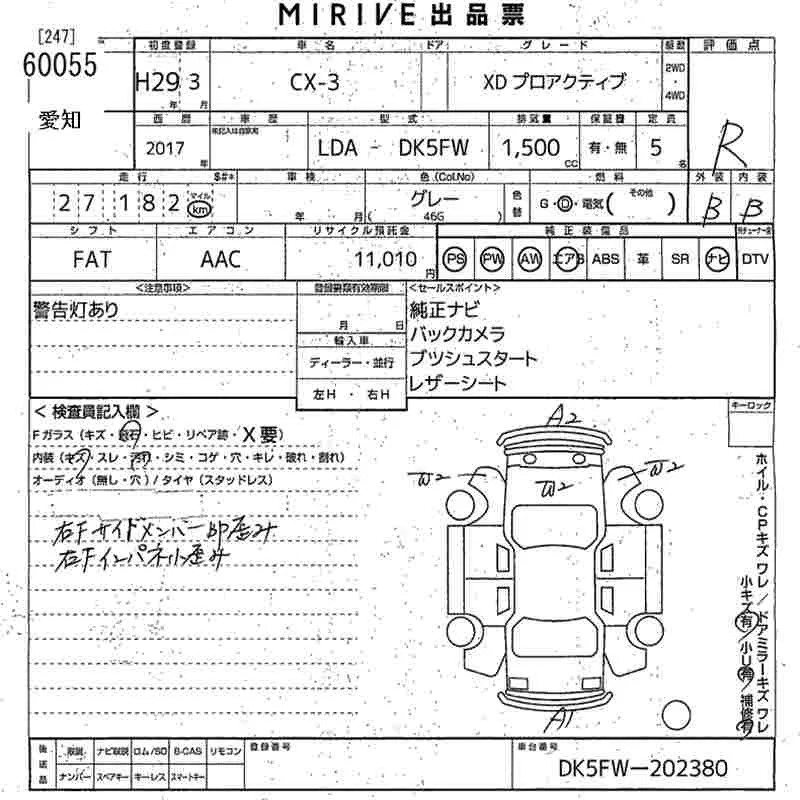 MIRIVE出品票
[247]
60055
愛知
初度登録 車名 ドア グレード 駆動 評価点
H29 3 CX-3 XD プロアクティブ 2WD・4WD R
年 月
西暦 車歴 型式 排気量 保証書 定員
2017 年 LDA - DK5FW 1,500 CC 有・無 5 名
走行 $#* 車検 色(Col.No) 燃料 外装 内装
27,182 マイル km 年 月 グレー ( 46G ) 色替 G・D・電気( その他 ) B B
シフト エアコン リサイクル預託金 純正装備品
FAT AAC 11,010 円 PS PW AW エアB ABS 革 SR ナビ DTV
<注意事項> 登録書類有効期限 <セールスポイント>
警告灯あり 純正ナビ
月 日 バックカメラ
輸入車 プッシュスタート
ディーラー・並行 レザーシート
左H ・ 右H
< 検査員記入欄 > キーロック
Fガラス(キズ・飛石・ヒビ・リペア跡・X要)
内装(キズ・スレ・汚れ・シミ・コゲ・穴・キレ・破れ・割れ)
オーディオ(無し・穴)/タイヤ(スタッドレス)
右Fサイドメンバー部歪み
右Fインパネル歪み
A2
W2 W2 W2
A1
ホイル・CPキズ ワレ/ドアミラーキズ ワレ
小キズ有/小U有/補修有
後送品 取説 ナビ取説 ロム/SD B-CAS リモコン 登録番号 車台番号
ナンバー スペアキー キーレス スマートキー DK5FW-202380